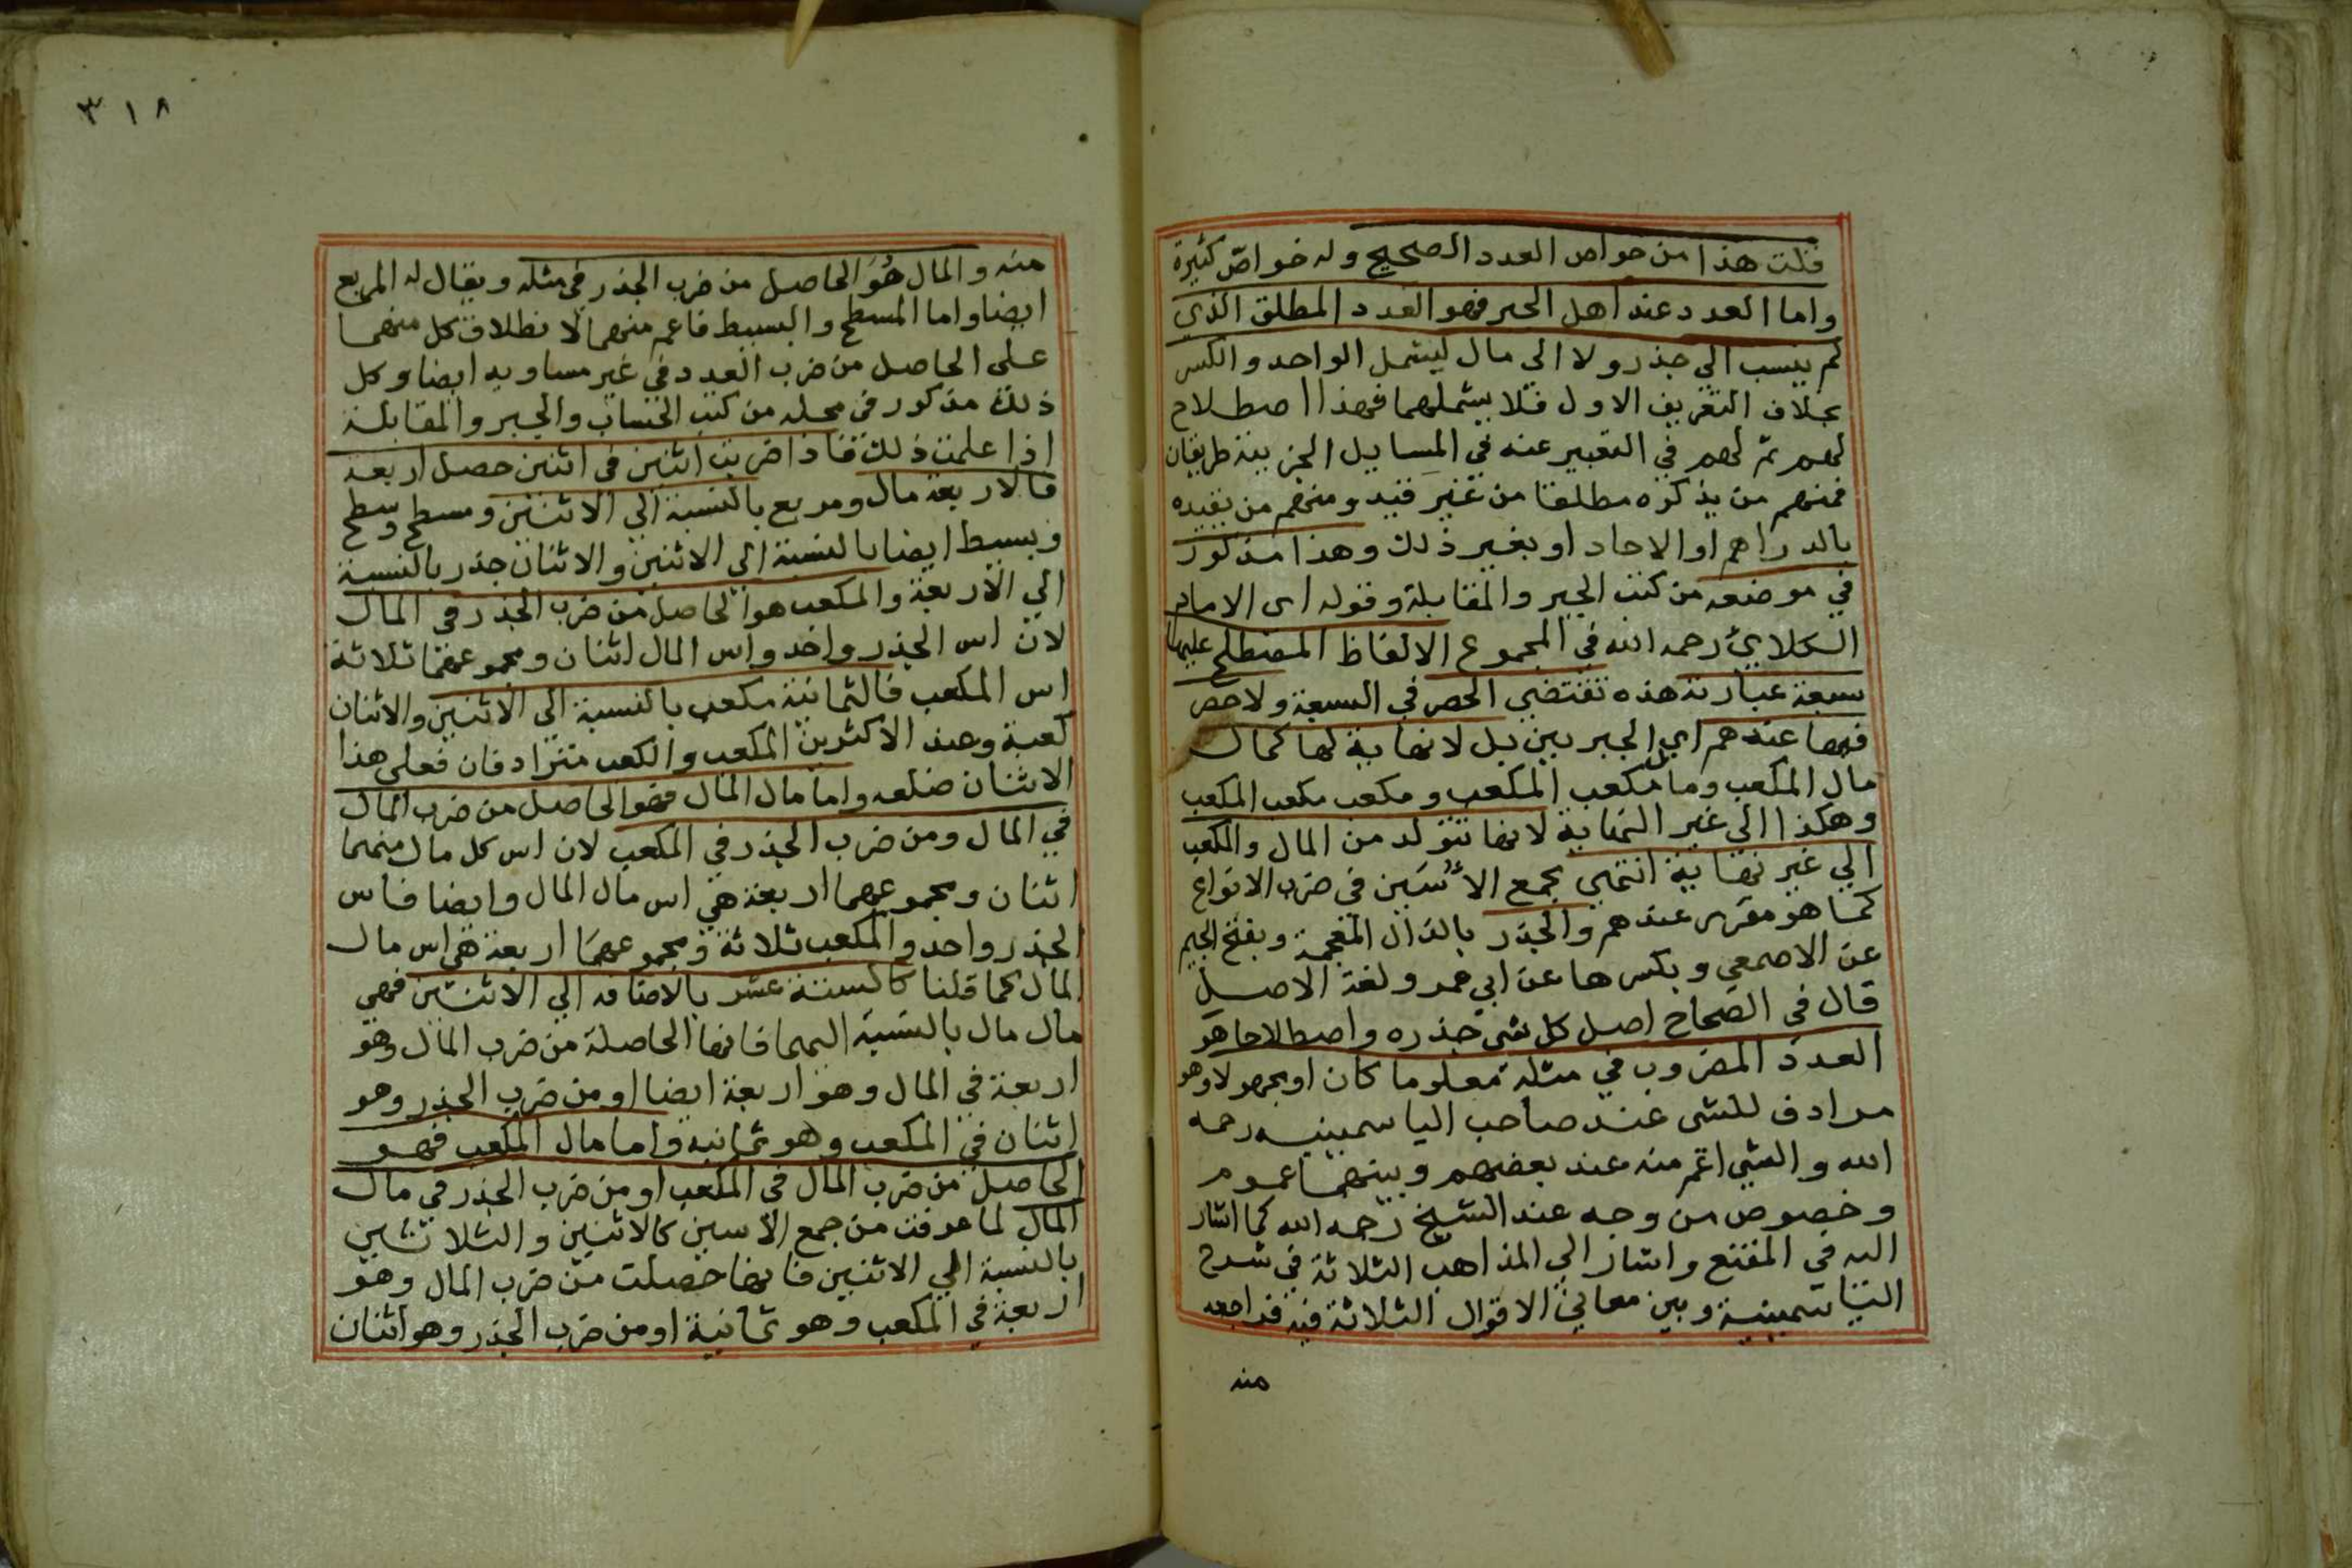 قلت هذا من خواص العدد الصحيح وله خواص كثيرة
واما العدد عند اهل الجبر فهو العدد المطلق الذي
لم ينسب الي جذر ولا الى مال ليشمل الواحد والكسر
بخلاف التعريف الاول فلا يشملهما فهذا اصطلاح
لهم ثم لهم في التعبير عنه في المسايل الجزيية طريقان
فمنهم من يذكره مطلقا من غير قيد ومنهم من يقيده
بالدراهم او الاحاد او بغير ذلك وهذا مذكور
في موضعه من كتب الجبر والمقابلة وقوله اى الامام
الكلايي رحمه الله في المجموع الالفاظ المصطلح عليها
سبعة عبارته هذه تقتضي الحصر في السبعة ولا حصر
فيها عندهم اي الجبريين بل لا نهاية لها كمال
مال المكعب ومال مكعب المكعب ومكعب مكعب المكعب
وهكذا الي غير النهاية لانها تتولد من المال والمكعب
الي غير نهاية انتهي بجمع الأُسَين في ضرب الانواع
كما هو مقرر عندهم والجذر بالذال المعجمة وبفتح الجيم
عن الاصمعي وبكسرها عن ابي عمرو لغة الاصل
قال في الصحاح اصل كل شي جذره واصطلاحا هو
العدد المضروب في مثله معلوما كان او مجهولا وهو
مرادف للشى عند صاحب الياسمينيه رحمه
الله والشي اعم منه عند بعضهم وبينهما عموم
وخصوص من وجه عند الشيخ رحمه الله كما اشار
اليه في المقنع واشار الي المذاهب الثلاثة في شرح
الياسمينية وبين معاني الاقوال الثلاثة فيه فراجعه
منه
٣١٨
منه والمال هُوَ الحاصل من ضرب الجذر في مثله ويقال له المربع
ايضا واما المسطح والبسيط فاعم منهما لانطلاق كل منهما
على الحاصل من ضرب العدد في غير مساويه ايضا وكل
ذلك مذكور في محله من كتب الحساب والجبر والمقابلة
اذا علمت ذلك فاذا ضربت اثنين في اثنين حصل اربعة
فالاربعة مال ومربع بالنسبة الي الاثنين ومسطح وسطح
وبسيط ايضا بالنسبة الي الاثنين والاثنان جذر بالنسبة
الي الاربعة والمكعب هو الحاصل من ضرب الجذر في المال
لان اس الجذر واحد واس المال اثنان ومجموعهما ثلاثة
اس المكعب فالثمانية مكعب بالنسبة الي الاثنين والاثنان
كعبه وعند الاكثرين المكعب والكعب مترادفان فعلى هذا
الاثنان ضلعه واما مال المال فهو الحاصل من ضرب المال
في المال ومن ضرب الجذر في المكعب لان اس كل مال منهما
اثنان ومجموعهما اربعة هي اس مال المال وايضا فاس
الجذر واحد والمكعب ثلاثة ومجموعهما اربعة هي اس مال
المال كما قلنا كالستة عشر بالاضافه الي الاثنين فهي
مال مال بالنسبة اليهما فانها الحاصلة من ضرب المال وهو
اربعة في المال وهو اربعة ايضا او من ضرب الجذر وهو
اثنان في المكعب وهو ثمانيه واما مال المكعب فهو
الحاصل من ضرب المال في المكعب او من ضرب الجذر في مال
المال لما عرفت من جمع الاسين كالاثنين والثلاثين
بالنسبة الي الاثنين فانها حصلت من ضرب المال وهو
اربعة في المكعب وهو ثمانية او من ضرب الجذر وهو اثنان